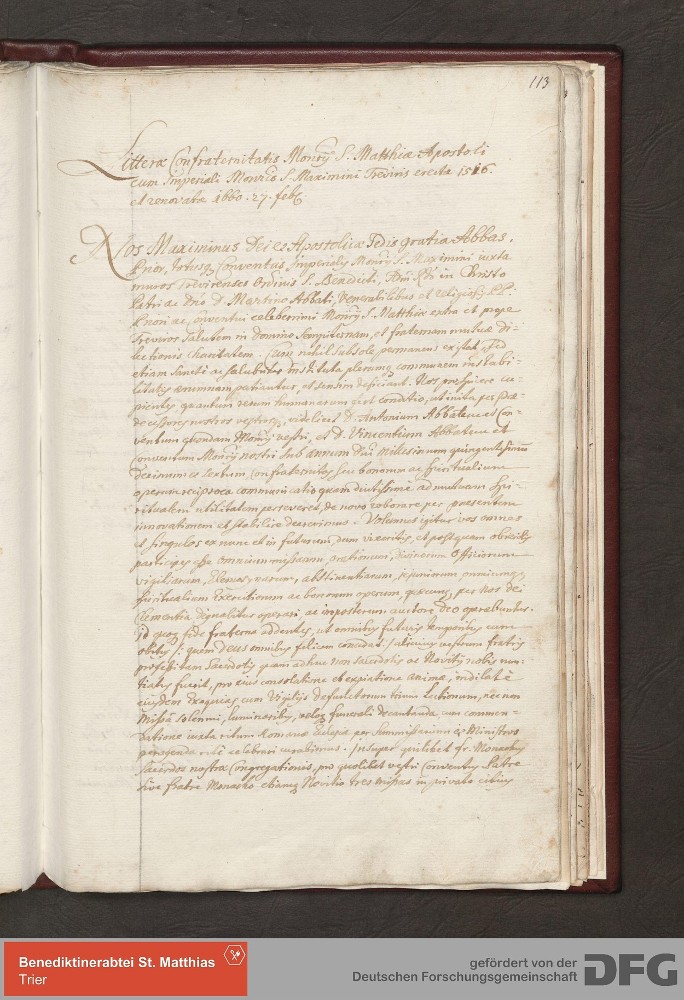 113
Litteræ Confraternitatis Monrÿ S. Matthiæ Apostoli
cum Imperiali Monrio S. Maximini Treviris erecta 1516.
et renovata 1660. 27. feb
Nos Maximinus Dei et Apostolicæ Sedis gratia Abbas,
Prior, totusq Conventus Imperialis Monrÿ S. Maximini iuxta
muros Trevirenses Ordinis S. Benedicti, in Christo
Patri ac Dno D. Martino Abbati, Venerabilibus et religiosis PP.
Priori ac Conventui celeberrimi Monrÿ S. Matthiæ extra et prope
Treviros salutem in Domino sempiternam, et fraternam mutuæ di-
lectionis charitatem. Cum nihil sub sole permanens existat, sed
etiam sanctè ac salubriter instituta plerumq communem instabi-
litatis ærumnam patiantur, et sensim deficiant. Nos prospicere cu-
pientes, quantum rerum humanarum fert conditio, ut inita per Præ-
decessores nostros vestrosq, videlicet D. Antonium Abbatem et Con-
ventum quondam Monrÿ vestri, et D. Vincentium Abbatem et
Conventum Monrÿ nostri sub annum Dni millesimum quingentesimum
decimum sextum, Confraternitas seu bonorum ac spiritualium
operum reciproca communicatio quam diutissime ad mutuam spi-
ritualem utilitatem perseveret, de novo roborare per præsentem
innovationem et stabilire decrevimus. Volumus igitur vos omnes
et singulos ex nunc et in futurum, dum vixeritis, et postquam obieritis
participes esse omnium missarum, orationum, divinorum Officiorum
vigiliarum, Elemosynarum, abstinentiarum, ieiuniorum omniumq
spiritualium Exercitiorum ac bonorum operum, quæcunq per nos Dei
Clementia dignabitur operari, ac inposterum auctore Deo operabuntur.
Id quoq fide fraterna addentes, ut omnibus futuris temporibus cum
obitus /: quem Deus omnibus felicem concedat :/ alicuius vestrum fratris
professi tam Sacerdotis quam adhuc non sacerdotis ac Novitÿ nobis nun-
tiatus fuerit, pro eius consolatione et expiatione animæ, indilatè
eiusdem Exequias cum Vigilÿs defunctorum trium lectionum, nec non
Missâ solenni, luminaribus, reliq funerali decantanda cum commen-
datione iuxta ritum Romanæ Ecclesiæ per Ministros
peragenda ritè celebrari curabimus. Insuper quilibet fr. Monachus
Sacerdos nostræ Congregationis, pro quolibet vestri Conventus Patre
sive fratre Monacho etiamq Novitio tres missas in privato citius
Benediktinerabtei St. Matthias
Trier
gefördert von der
Deutschen Forschungsgemeinschaft
DFG